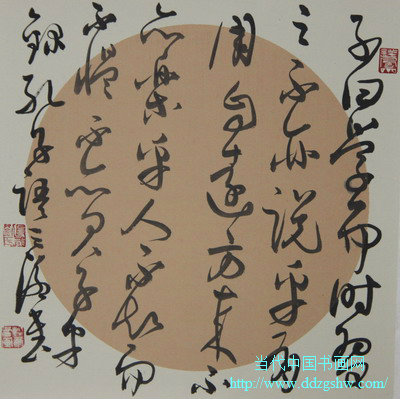 子曰學而时習
之不亦说乎有
朋自遠方来不
亦樂乎人不知而
不愠不亦君子乎
録孔子語
当代中国书画网
http://www.ddzgshw.com/